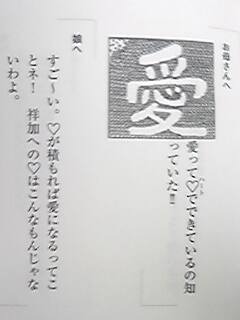 お母さんへ
愛
愛って♡でできているの知
っていた!!
娘へ
すご〜い。♡が積もれば愛になるってこ
とネ! 祥加への♡はこんなもんじゃな
いわよ。